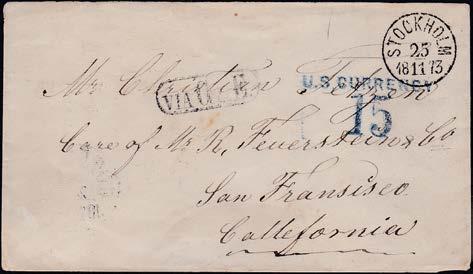 STOCKHOLM
25
18 11 73
U.S. CURRENCY
15
Mr Christian
VIA
Care of Mr R. Feuerstein & Co
San Fransisco
Callefornia